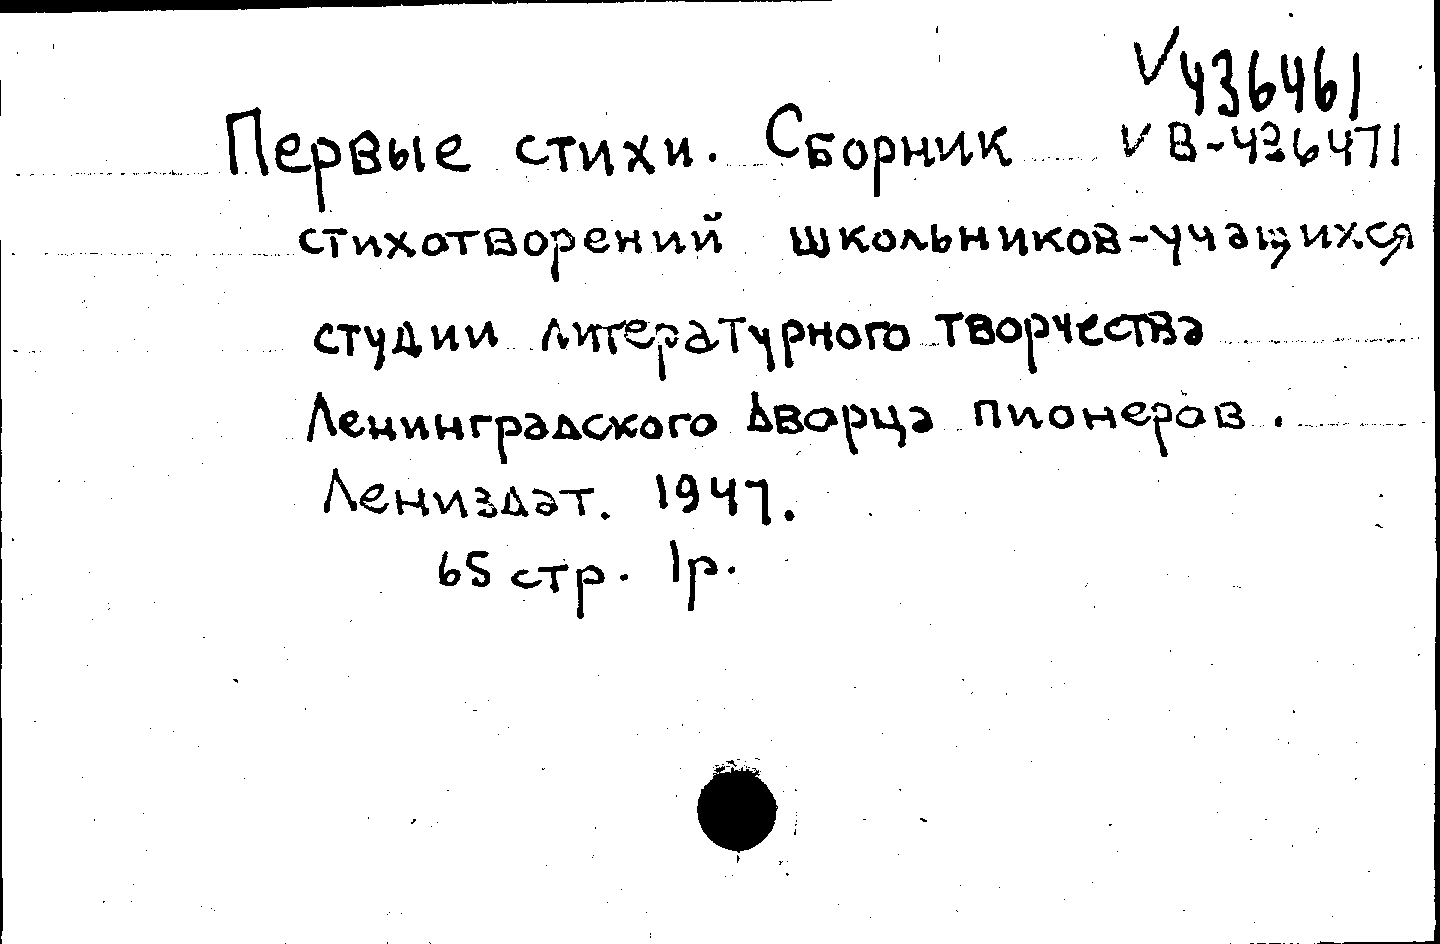 V 436461
Первые стихи. Сборник V В-436471
стихотворений школьников-учащихся
студии литературного творчества
Ленинградского дворца пионеров.
Лениздат. 1947.
65 стр. 1р.